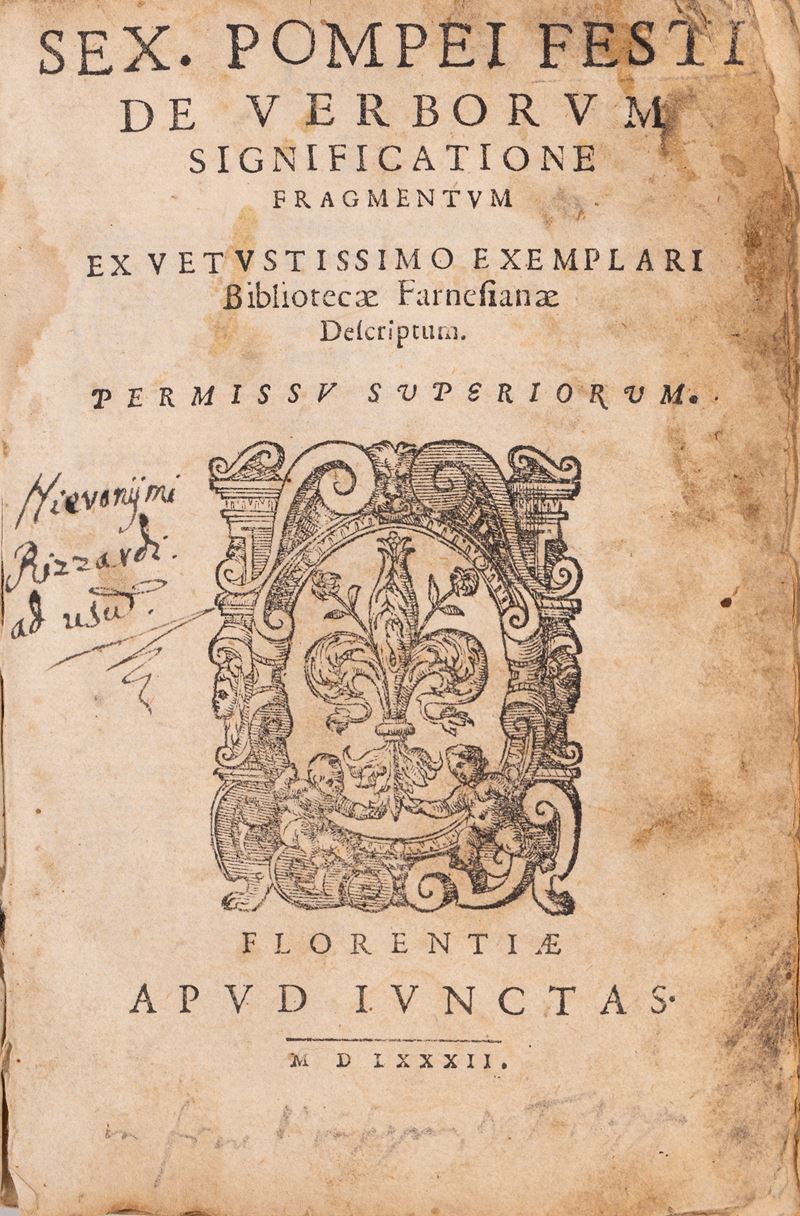 SEX. POMPEI FESTI
DE VERBORVM
SIGNIFICATIONE
FRAGMENTVM
EX VETVSTISSIMO EXEMPLARI
Bibliotecæ Farneſianæ
Deſcriptum.
PERMISSV SUPERIORUM.
Hieronijmi
Rizzardi.
ad usū.
FLORENTIÆ
APVD IVNCTAS.
MDLXXXII.
in fine